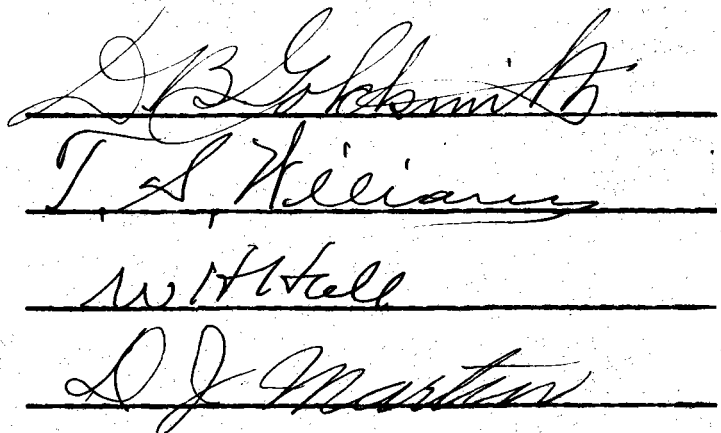 D. B. Goldsmith
T. S. Williams
W H Hall
D J Martin